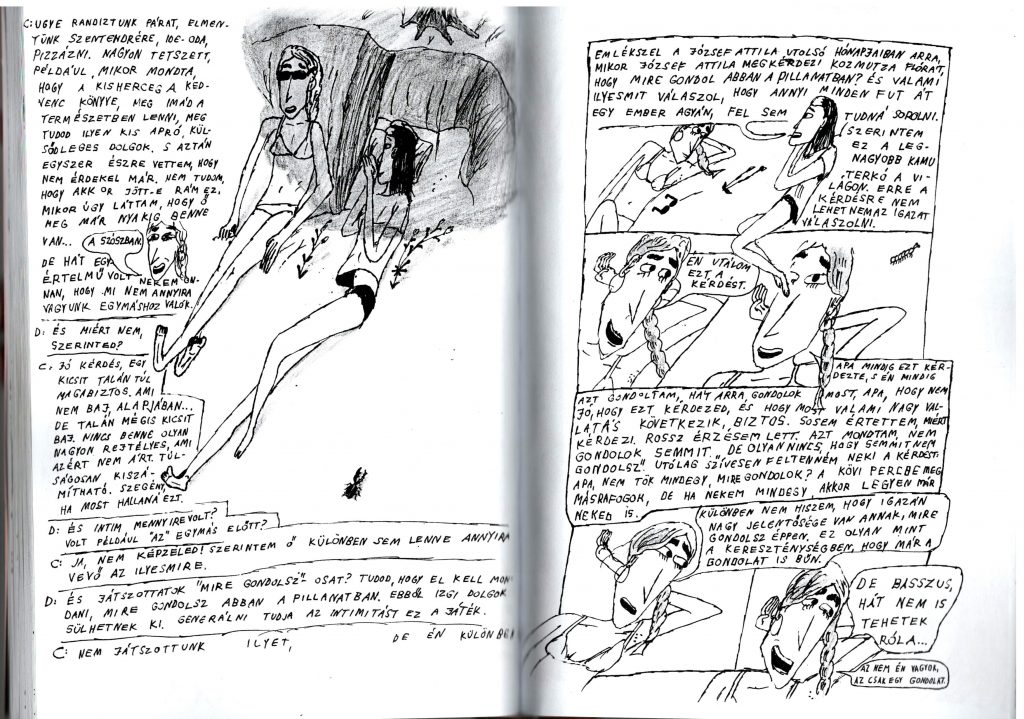 C: UGYE RANDIZTUNK PÁRAT, ELMEN-
TÜNK SZENTENDRÉRE, IDE-ODA,
PIZZÁZNI. NAGYON TETSZETT,
PÉLDÁUL, MIKOR MONDTA,
HOGY A KISHERCEG A KED-
VENC KÖNYVE, MEG IMÁD A
TERMÉSZETBEN LENNI, MEG
TUDOD ILYEN KIS APRÓ, KÜL-
SŐDLEGES DOLGOK. S AZTÁN
EGYSZER ÉSZRE VETTEM, HOGY
NEM ÉRDEKEL MÁR. NEM TUDOM,
HOGY AKKOR JÖTT-E RÁM EZ,
MIKOR ÚGY LÁTTAM, HOGY Ő
MEG MÁR NYAKIG BENNE
VAN...
A SZÓSZBAN.
DE HÁT EGY
ÉRTELMŰ VOLT NEKEM ON-
NAN, HOGY MI NEM ANNYIRA
VAGYUNK EGYMÁSHOZ VALÓK.
D: ÉS MIÉRT NEM,
SZERINTED?
C: JÓ KÉRDÉS, EGY
KICSIT TALÁN TÚL
MAGABIZTOS. AMI
NEM BAJ, ALAPJÁBAN...
DE TALÁN MÉGIS KICSIT
BAJ. NINCS BENNE OLYAN
NAGYON REJTÉLYES, AMI
AZÉRT NEM ÁRT. TÚL-
SÁGOSAN KISZÁ-
MÍTHATÓ. SZEGÉNY,
HA MOST HALLANÁ EZT.
D: ÉS INTIM, MENNYIRE VOLT?
VOLT PÉLDÁUL "AZ" EGYMÁS ELŐTT?
C: JA, NEM KÉPZELED! SZERINTEM Ő KÜLÖNBEN SEM LENNE ANNYIRA
VEVŐ AZ ILYESMIRE.
D: ÉS JÁTSZOTTATOK "MIRE GONDOLSZ"-OSAT? TUDOD, HOGY EL KELL MON
DANI, MIRE GONDOLSZ ABBAN A PILLANATBAN. EBBŐL IZGI DOLGOK
SÜLHETNEK KI. GENERÁLNI TUDJA AZ INTIMITÁST EZ A JÁTÉK.
C: NEM JÁTSZOTTUNK ILYET, DE ÉN KÜLÖNBEN
EMLÉKSZEL A JÓZSEF ATTILA UTOLSÓ HÓNAPJAIBAN ARRA,
MIKOR JÓZSEF ATTILA MEGKÉRDEZI KOZMUTZA FLÓRÁT,
HOGY MIRE GONDOL ABBAN A PILLANATBAN? ÉS VALAMI
ILYESMIT VÁLASZOL, HOGY ANNYI MINDEN FUT ÁT
EGY EMBER AGYÁN, FEL SEM
TUDNÁ SOROLNI.
SZERINTEM
EZ A LEG-
NAGYOBB KAMU
TERKÓ A VI-
LÁGON. ERRE A
KÉRDÉSRE NEM
LEHET NEM AZ IGAZAT
VÁLASZOLNI.
ÉN UTÁLOM
EZT A
KÉRDÉST.
APA MINDIG EZT KÉR-
DEZTE, S ÉN MINDIG
AZT GONDOLTAM, HÁT ARRA GONDOLOK MOST, APA, HOGY NEM
JÓ, HOGY EZT KÉRDEZED, ÉS HOGY MOST VALAMI NAGY VAL-
LATÁS KÖVETKEZIK, BIZTOS. SOSEM ÉRTETTEM, MIÉRT
KÉRDEZI. ROSSZ ÉRZÉSEM LETT. AZT MONDTAM, NEM
GONDOLOK SEMMIT. "DE OLYAN NINCS, HOGY SEMMIT NEM
GONDOLSZ" UTÓLAG SZÍVESEN FELTENNÉM NEKI A KÉRDÉST:
APA, NEM TÖK MINDEGY, MIRE GONDOLOK? A KÖVI PERCBE MEG
MÁSRA FOGOK, DE HA NEKEM MINDEGY, AKKOR LEGYEN MÁR
NEKED IS.
KÜLÖNBEN NEM HISZEM, HOGY IGAZÁN
NAGY JELENTŐSÉGE VAN ANNAK, MIRE
GONDOLSZ ÉPPEN. EZ OLYAN MINT
A KERESZTÉNYSÉGBEN, HOGY MÁR A
GONDOLAT IS BŰN.
DE BASSZUS,
HÁT NEM IS
TEHETEK
RÓLA...
AZ NEM ÉN VAGYOK,
AZ CSAK EGY GONDOLAT.